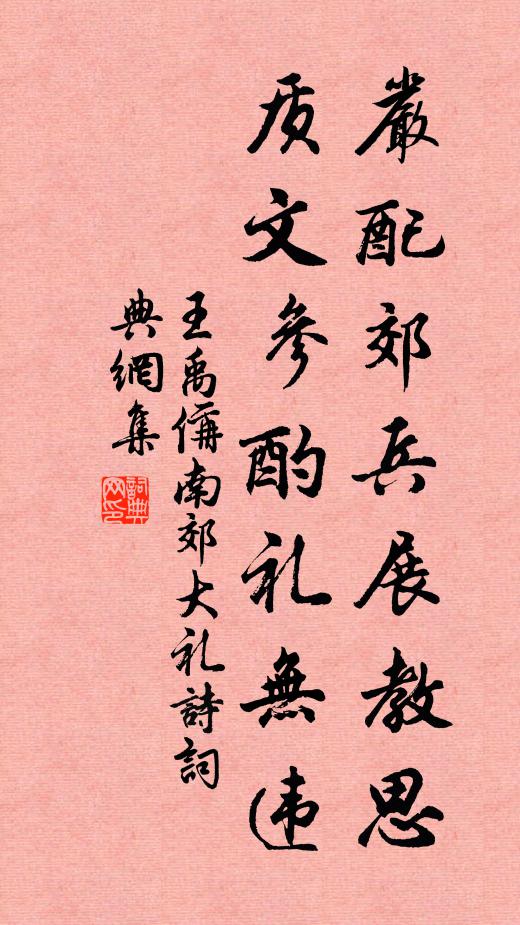 嚴配郊兵展教思
质文參酌礼無违
王禹偁南郊大礼詩詞
典網集
詞典網印